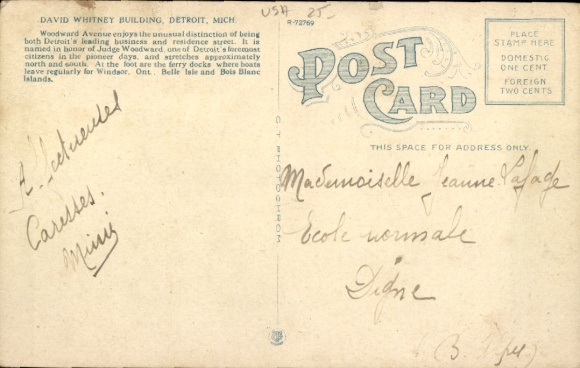 USA 25-
DAVID WHITNEY BUILDING, DETROIT, MICH.
R-72769
Woodward Avenue enjoys the unusual distinction of being
both Detroit's leading business and residence street. It is
named in honor of Judge Woodward, one of Detroit's foremost
citizens in the pioneer days, and stretches approximately
north and south. At the foot are the ferry docks where boats
leave regularly for Windsor, Ont., Belle Isle and Bois Blanc
Islands.
POST
CARD
PLACE
STAMP HERE
DOMESTIC
ONE CENT
FOREIGN
TWO CENTS
THIS SPACE FOR ADDRESS ONLY.
Affectueuses
Caresses.
Mimi
Mademoiselle Jeanne Lafage
Ecole normale
Digne
(B. Alpes)